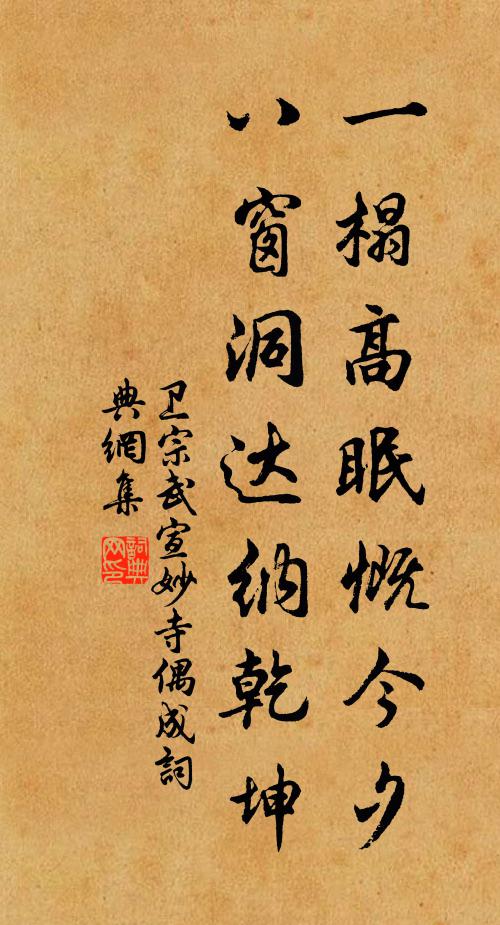 一榻高眠慨今夕
八窗洞达纳乾坤
卫宗武宣妙寺偶成詞
典網集
詞典
网印